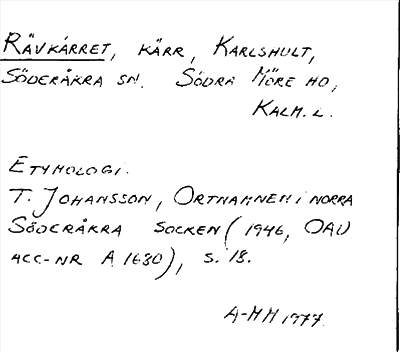 RÄVKÄRRET, KÄRR, KARLSHULT,
SÖDERÅKRA SN. SÖDRA MÖRE HD,
KALM. L.
ETYMOLOGI.
T. JOHANSSON, ORTNAMNEN I NORRA
SÖDERÅKRA SOCKEN (1946, OAU
ACC-NR A 1680), S. 18.
A-MH 1977.